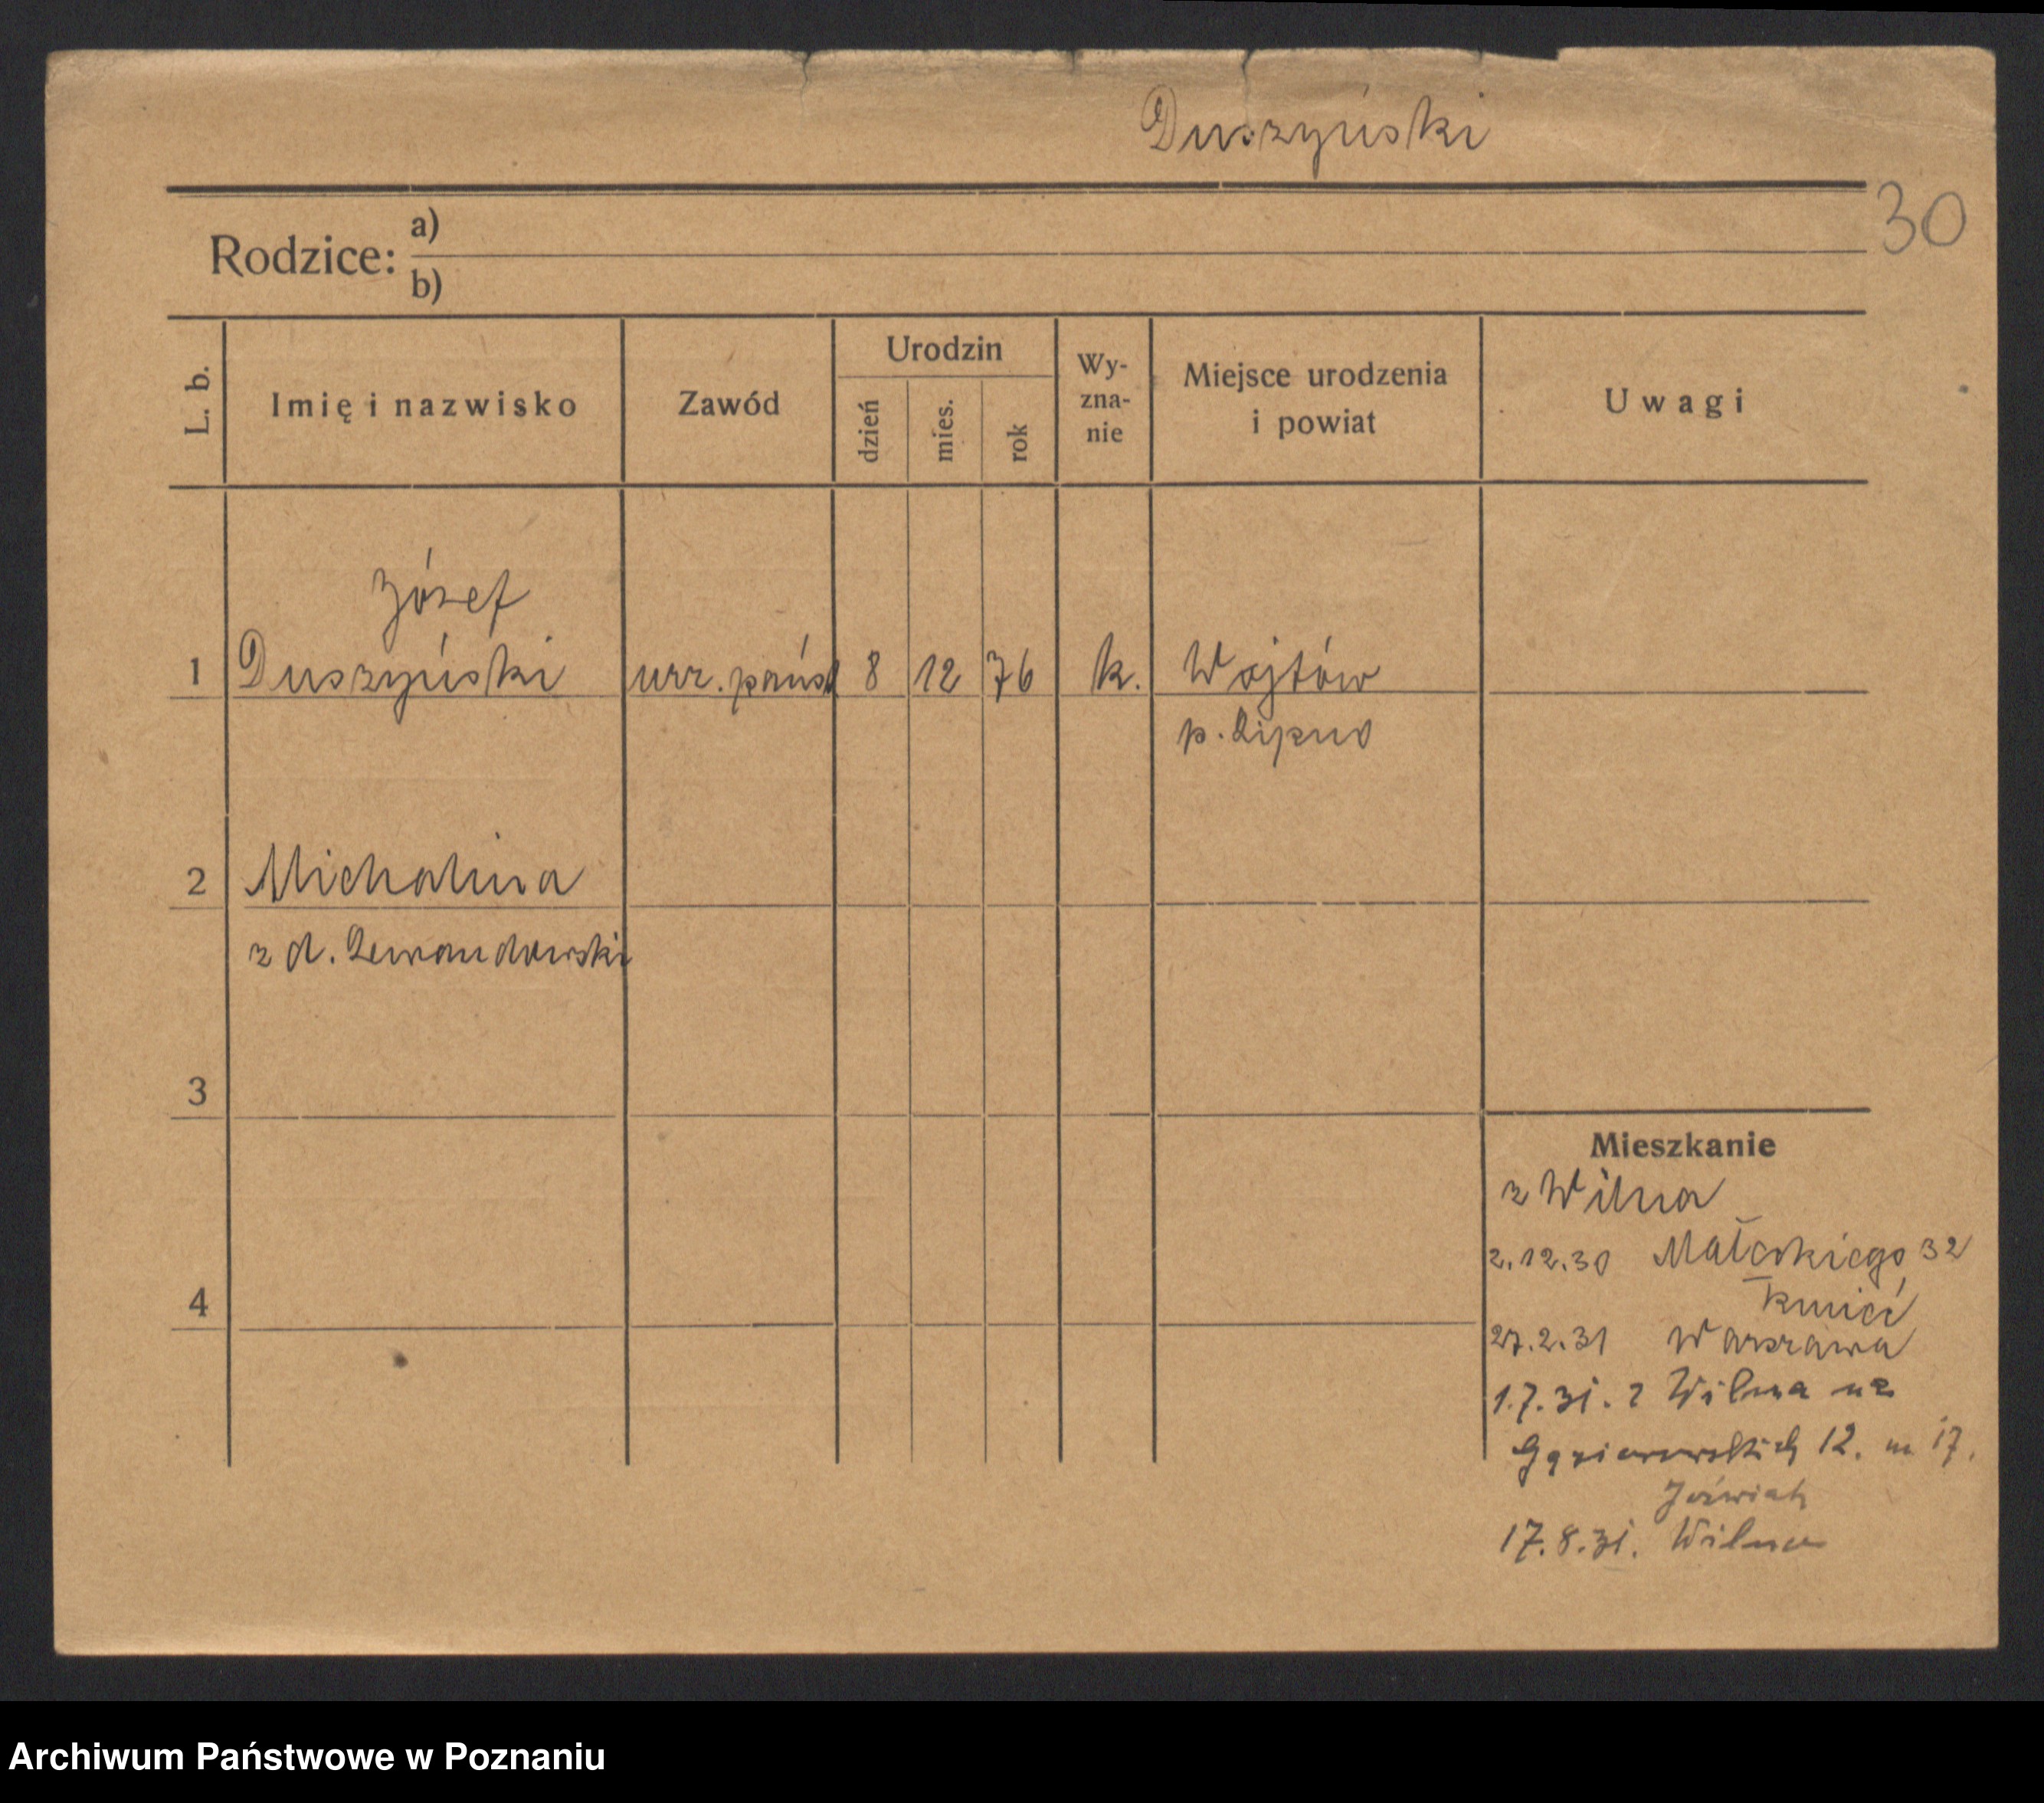 Duszyński
30
Rodzice: a)
b)
L. b. Imię i nazwisko Zawód Urodzin dzień mies. rok Wy-zna-nie Miejsce urodzenia i powiat Uwagi
Józef
1 Duszyński urz. państ 8 12 76 k. Wojtów
p. Lipno
2 Michalina
z d. Lewandowski
3
Mieszkanie
z Wilna
2.12.30 Małeckiego 32
Kmieć
4
27.2.31 Warszawa
1.7.31. z Wilna na
Gąsiorowskich 12. m 17.
Jóźwiak
17.8.31. Wilno
Archiwum Państwowe w Poznaniu